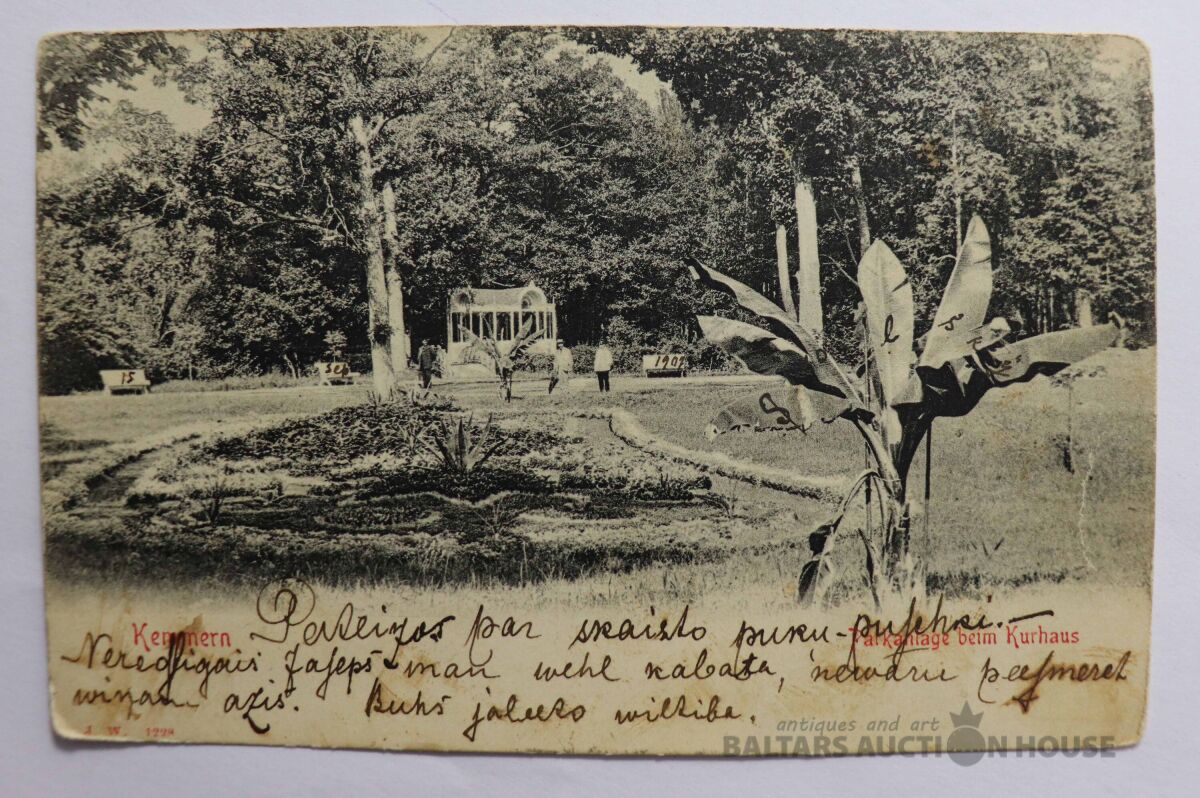 15 Sep 1902
Kemmern
Parkanlage beim Kurhaus
Pateizos par skaisto puķu-puſchķi.—
Neredſigais Jaſeps man wehl kabata, newaru peeſmeret
wiņam azis. Buhs jaleeto wiltiba.
J. W. 1228
antiques and art
BALTARS AUCTION HOUSE